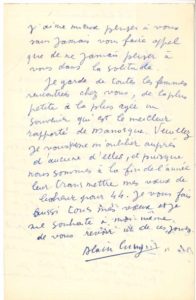 j'aime mieux penser à vous
sans jamais vous faire appel
que de ne jamais penser à
vous dans la solitude
Je garde de toutes les femmes
rencontrées chez vous, de la plus
petite à la plus âgée un
souvenir qui est le meilleur
rapporté de Manosque. Veuillez
je vous prie m'oublier auprès
d'aucune d'elles, et puisque
nous sommes à la fin de l'année
leur transmettre mes vœux de
bonheur pour 44. Je vous fais
aussi tous mes vœux et je
me souhaite à moi-même
de vous revoir un de ces jours
Alain